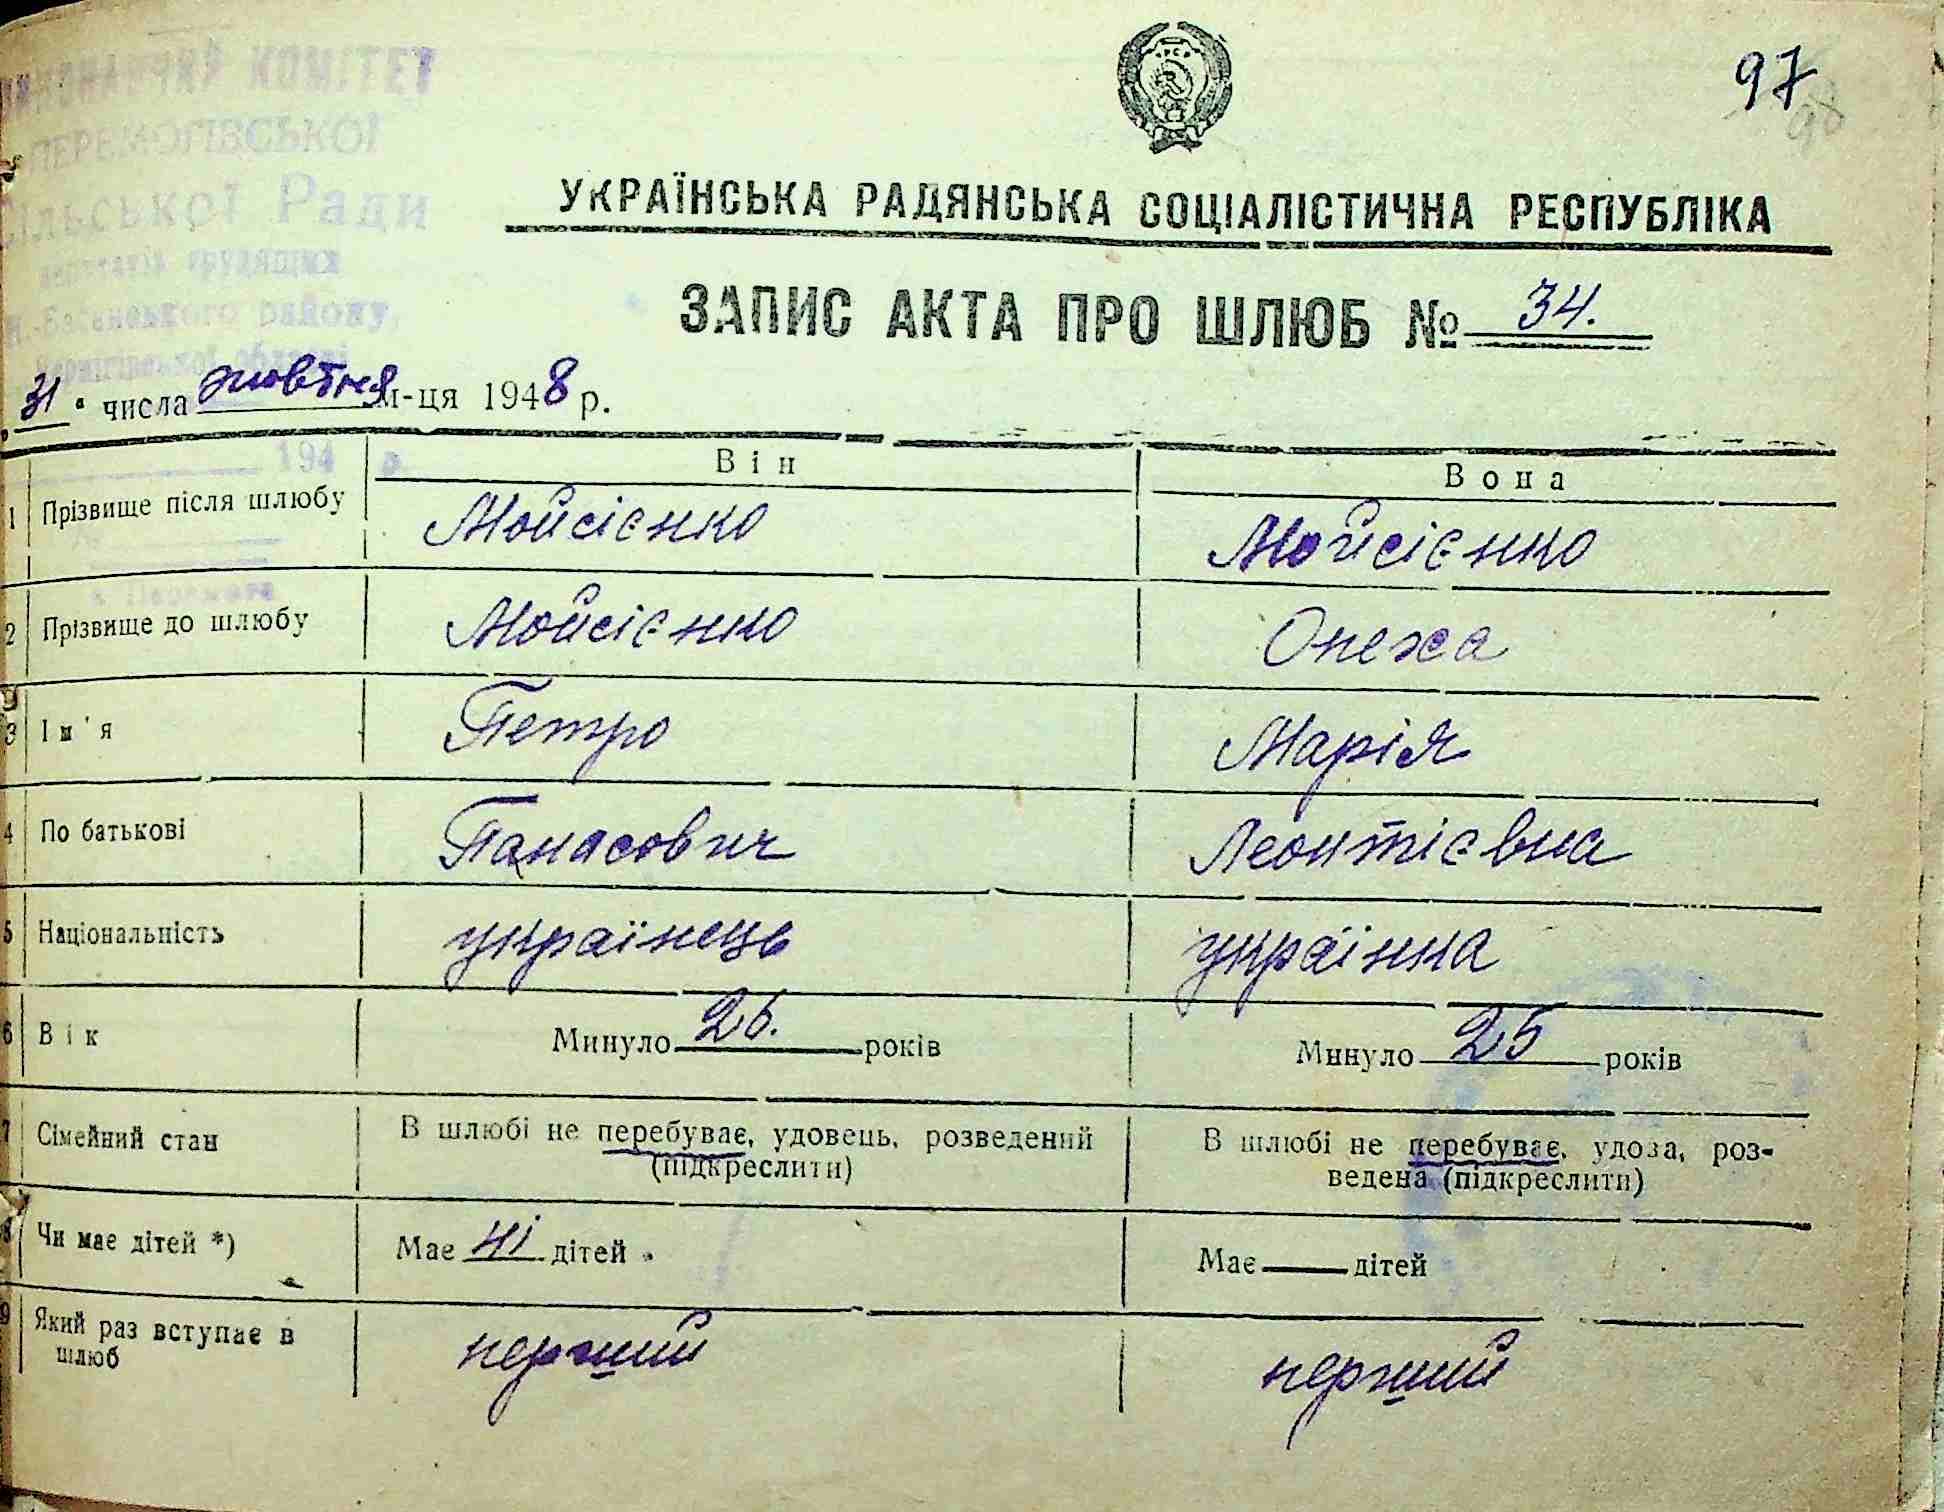 97
98
ВИКОНАВЧИЙ КОМІТЕТ
ПЕРЕМОГІВСЬКОЇ
СІЛЬСЬКОЇ Ради
депутатів трудящих
Н.-Басанського району,
Чернігівської області
194 р.
с. Перемога
УКРАЇНСЬКА РАДЯНСЬКА СОЦІАЛІСТИЧНА РЕСПУБЛІКА
ЗАПИС АКТА ПРО ШЛЮБ № 34.
„31“ числа жовтня м-ця 1948 р.
Він Вона
1 Прізвище після шлюбу Мойсієнко Мойсієнко
2 Прізвище до шлюбу Мойсієнко Онежа
3 Ім'я Петро Марія
4 По батькові Панасович Леонтієвна
5 Національність українець українка
6 Вік Минуло 26. років Минуло 25 років
7 Сімейний стан В шлюбі не перебуває, удовець, розведений (підкреслити) В шлюбі не перебуває, удова, роз-
ведена (підкреслити)
8 Чи має дітей *) Має ні дітей. Має — дітей
9 Який раз вступає в шлюб перший перший